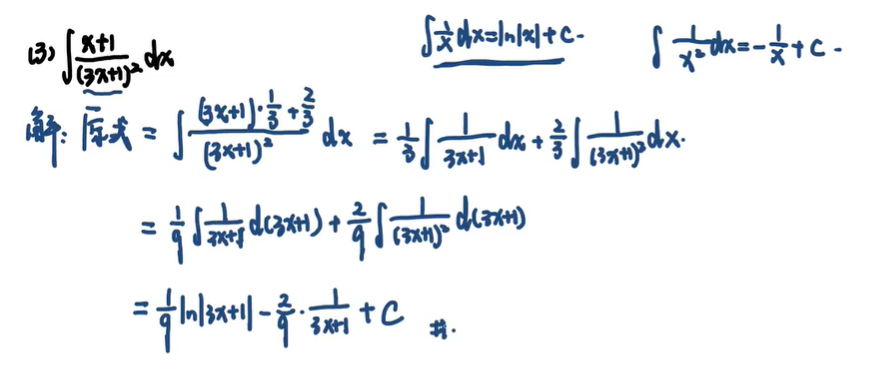 (3) ∫ (x+1)/(3x+1)² dx
∫ 1/x dx = ln|x| + C.
∫ 1/x² dx = -1/x + C.
解: 原式 = ∫ ((3x+1)·1/3 + 2/3)/(3x+1)² dx = 1/3 ∫ 1/(3x+1) dx + 2/3 ∫ 1/(3x+1)² dx.
= 1/9 ∫ 1/(3x+1) d(3x+1) + 2/9 ∫ 1/(3x+1)² d(3x+1)
= 1/9 ln|3x+1| - 2/9 · 1/(3x+1) + C #.